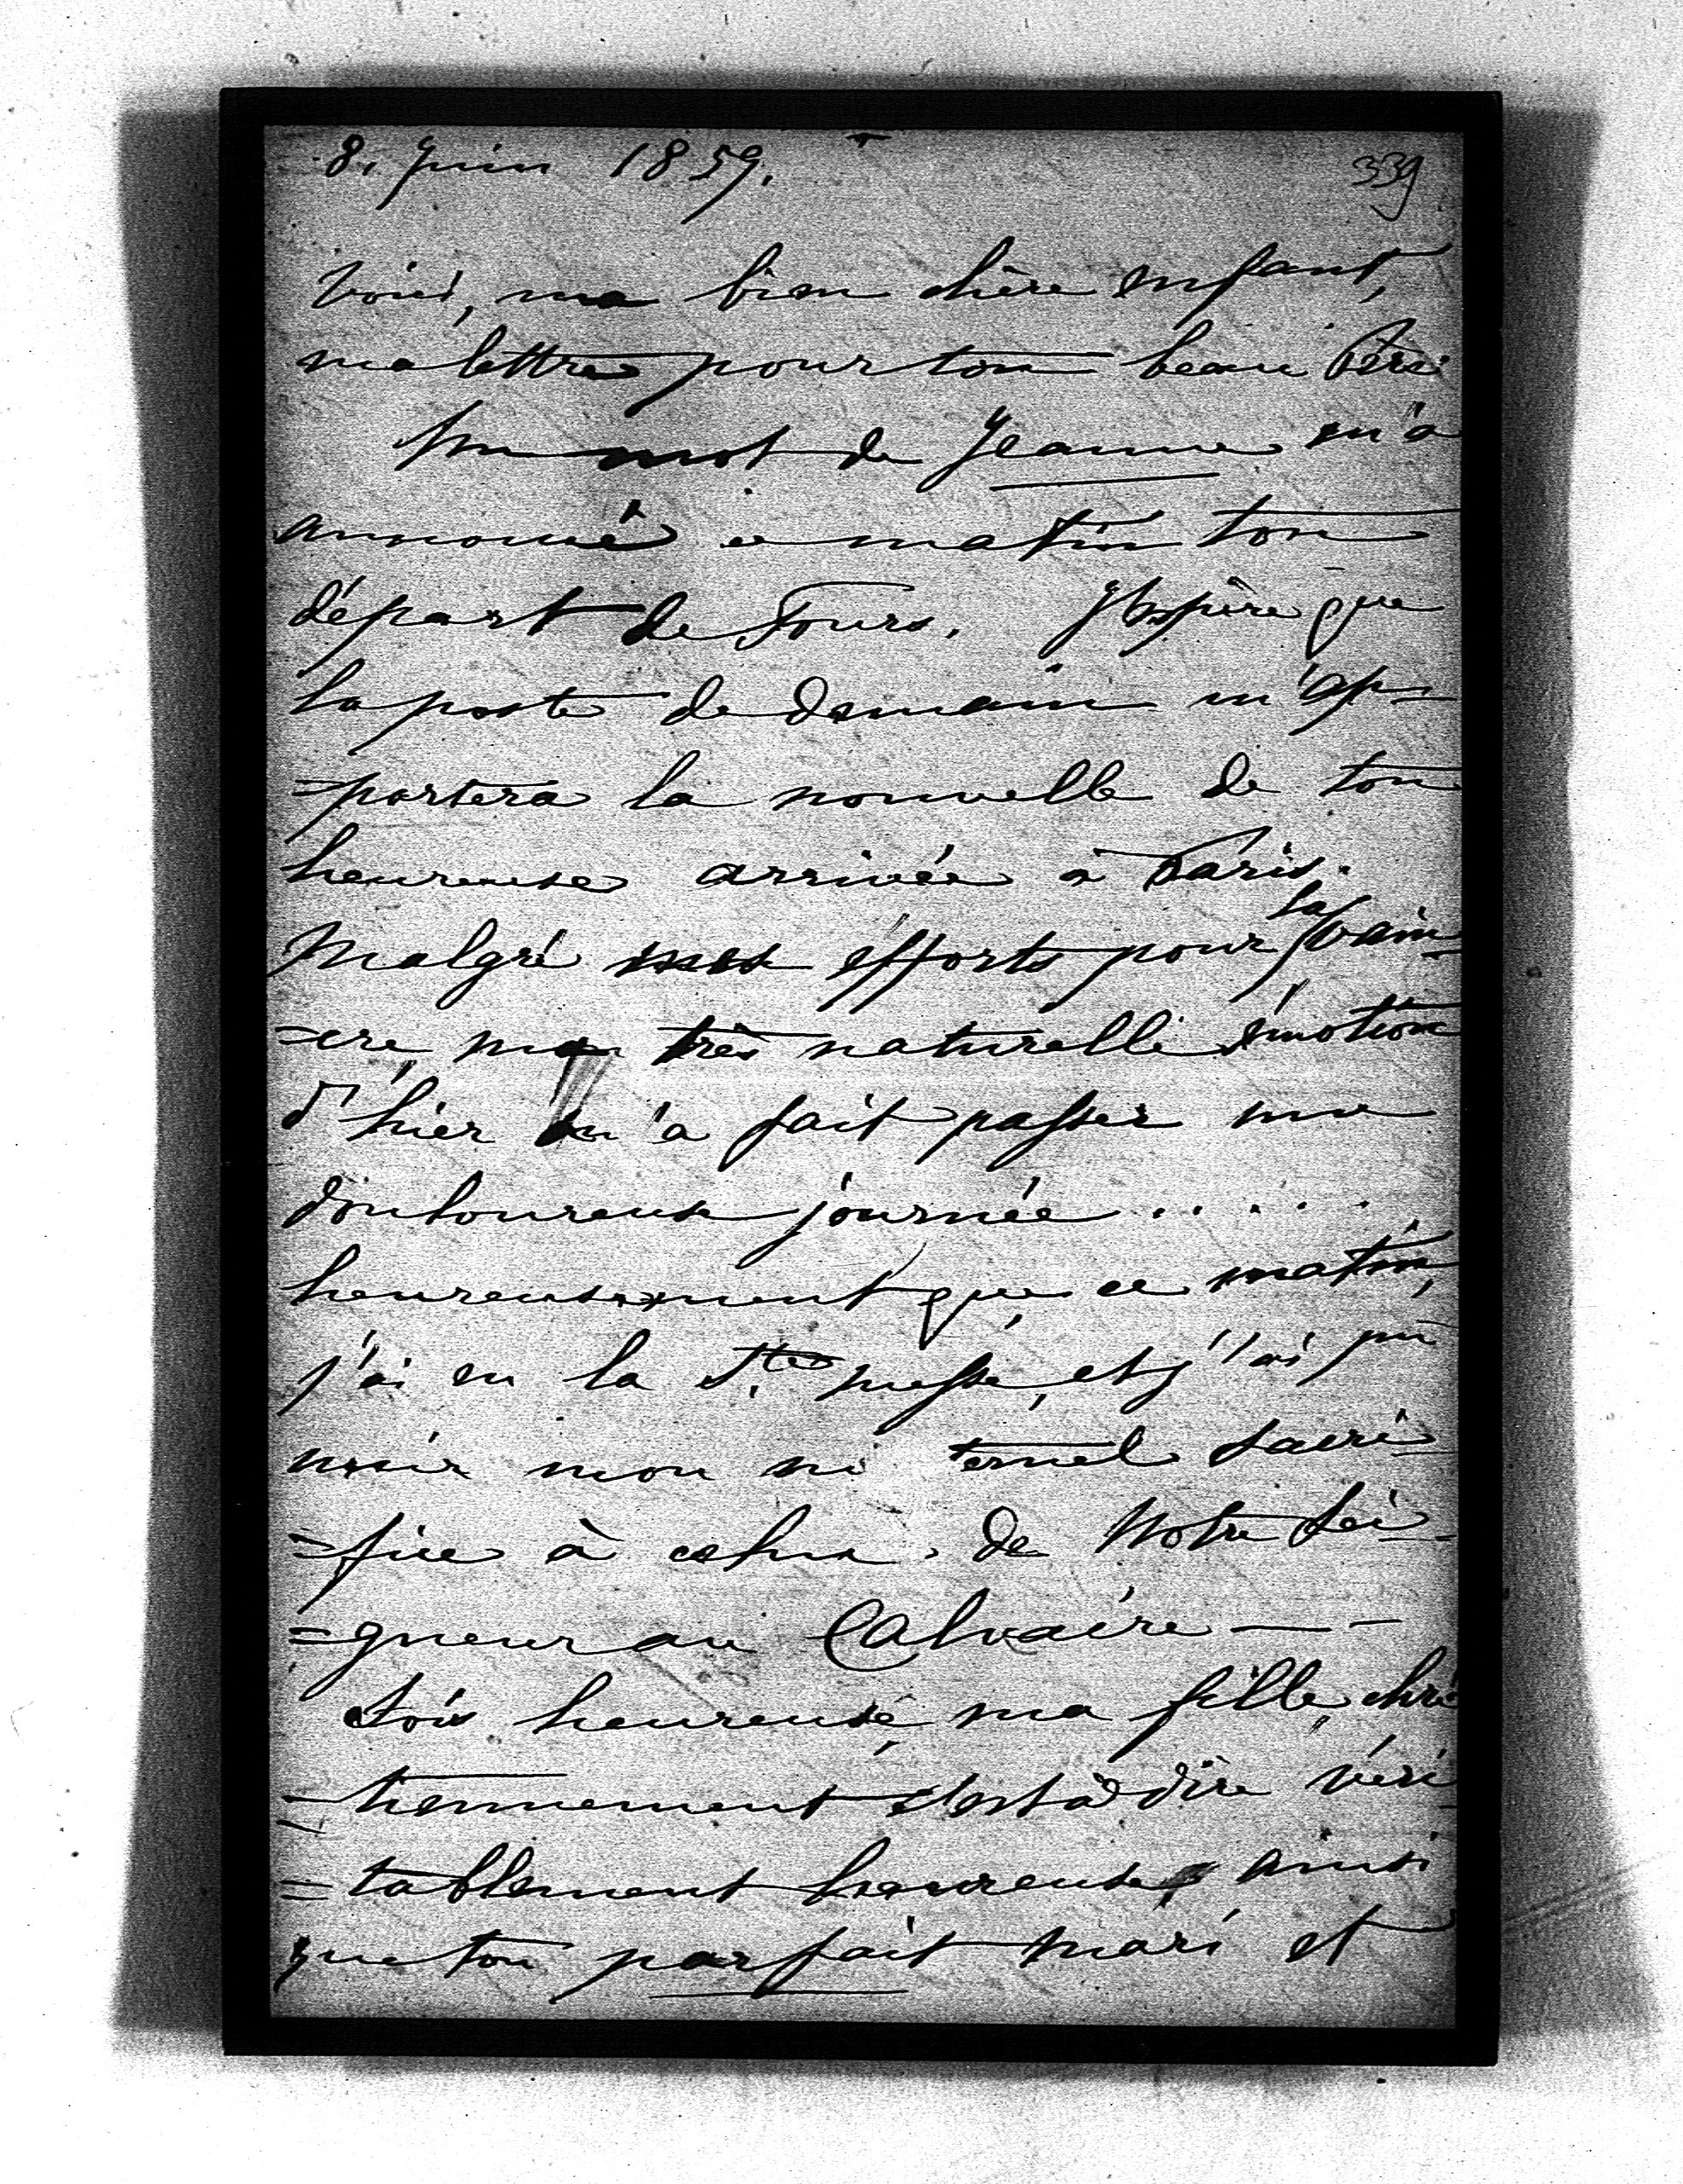 8. Juin 1859.
339
Voici, ma bien chère enfant,
ma lettre pour ton beau Père.
Un mot de Jeanne m'a
annoncé ce matin ton
départ de Tours. J'espère que
la poste de demain m'ap-
=portera la nouvelle de ton
heureuse arrivée à Paris.
la
Malgré mes efforts pour vain-
=cre, ma très naturelle émotion
d'hier m'a fait passer une
douloureuse journée .....
heureusement que, ce matin,
j'ai eu la Ste messe, et j'ai pu
unir mon ternel sacri-
=fice à celui de Notre Sei-
=gneur au Calvaire — -
Sois heureuse, ma fille, chré
=tiennement c'est à dire véri
=tablement heureuse, ainsi
que ton parfait mari et